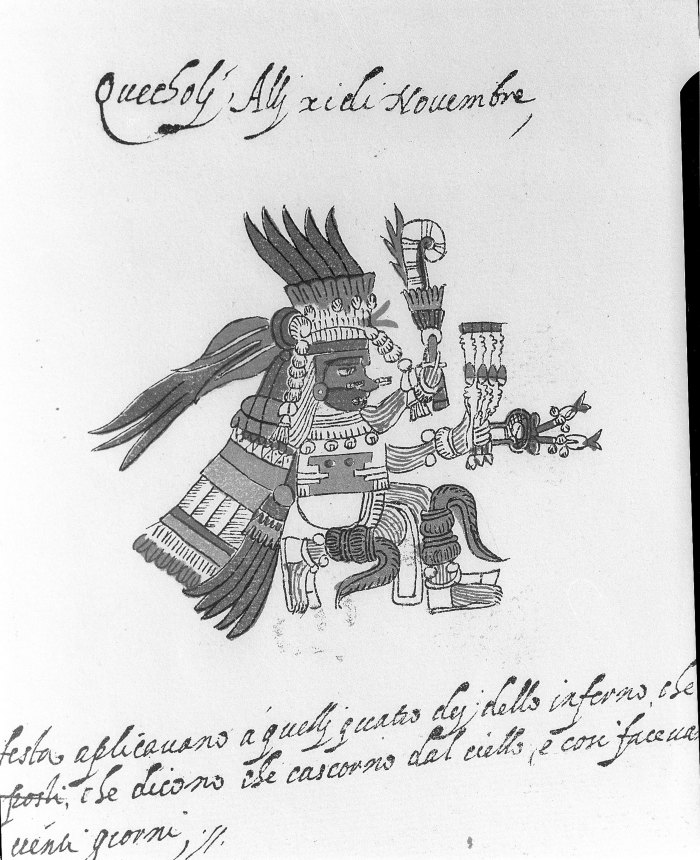 Quecholj, Allj xi di Novembre,
festa aplicavano a quellj quatro dej dello inferno, che
posti, che dicono che cascorno dal ciello, e cosi faceva
venti giorni,